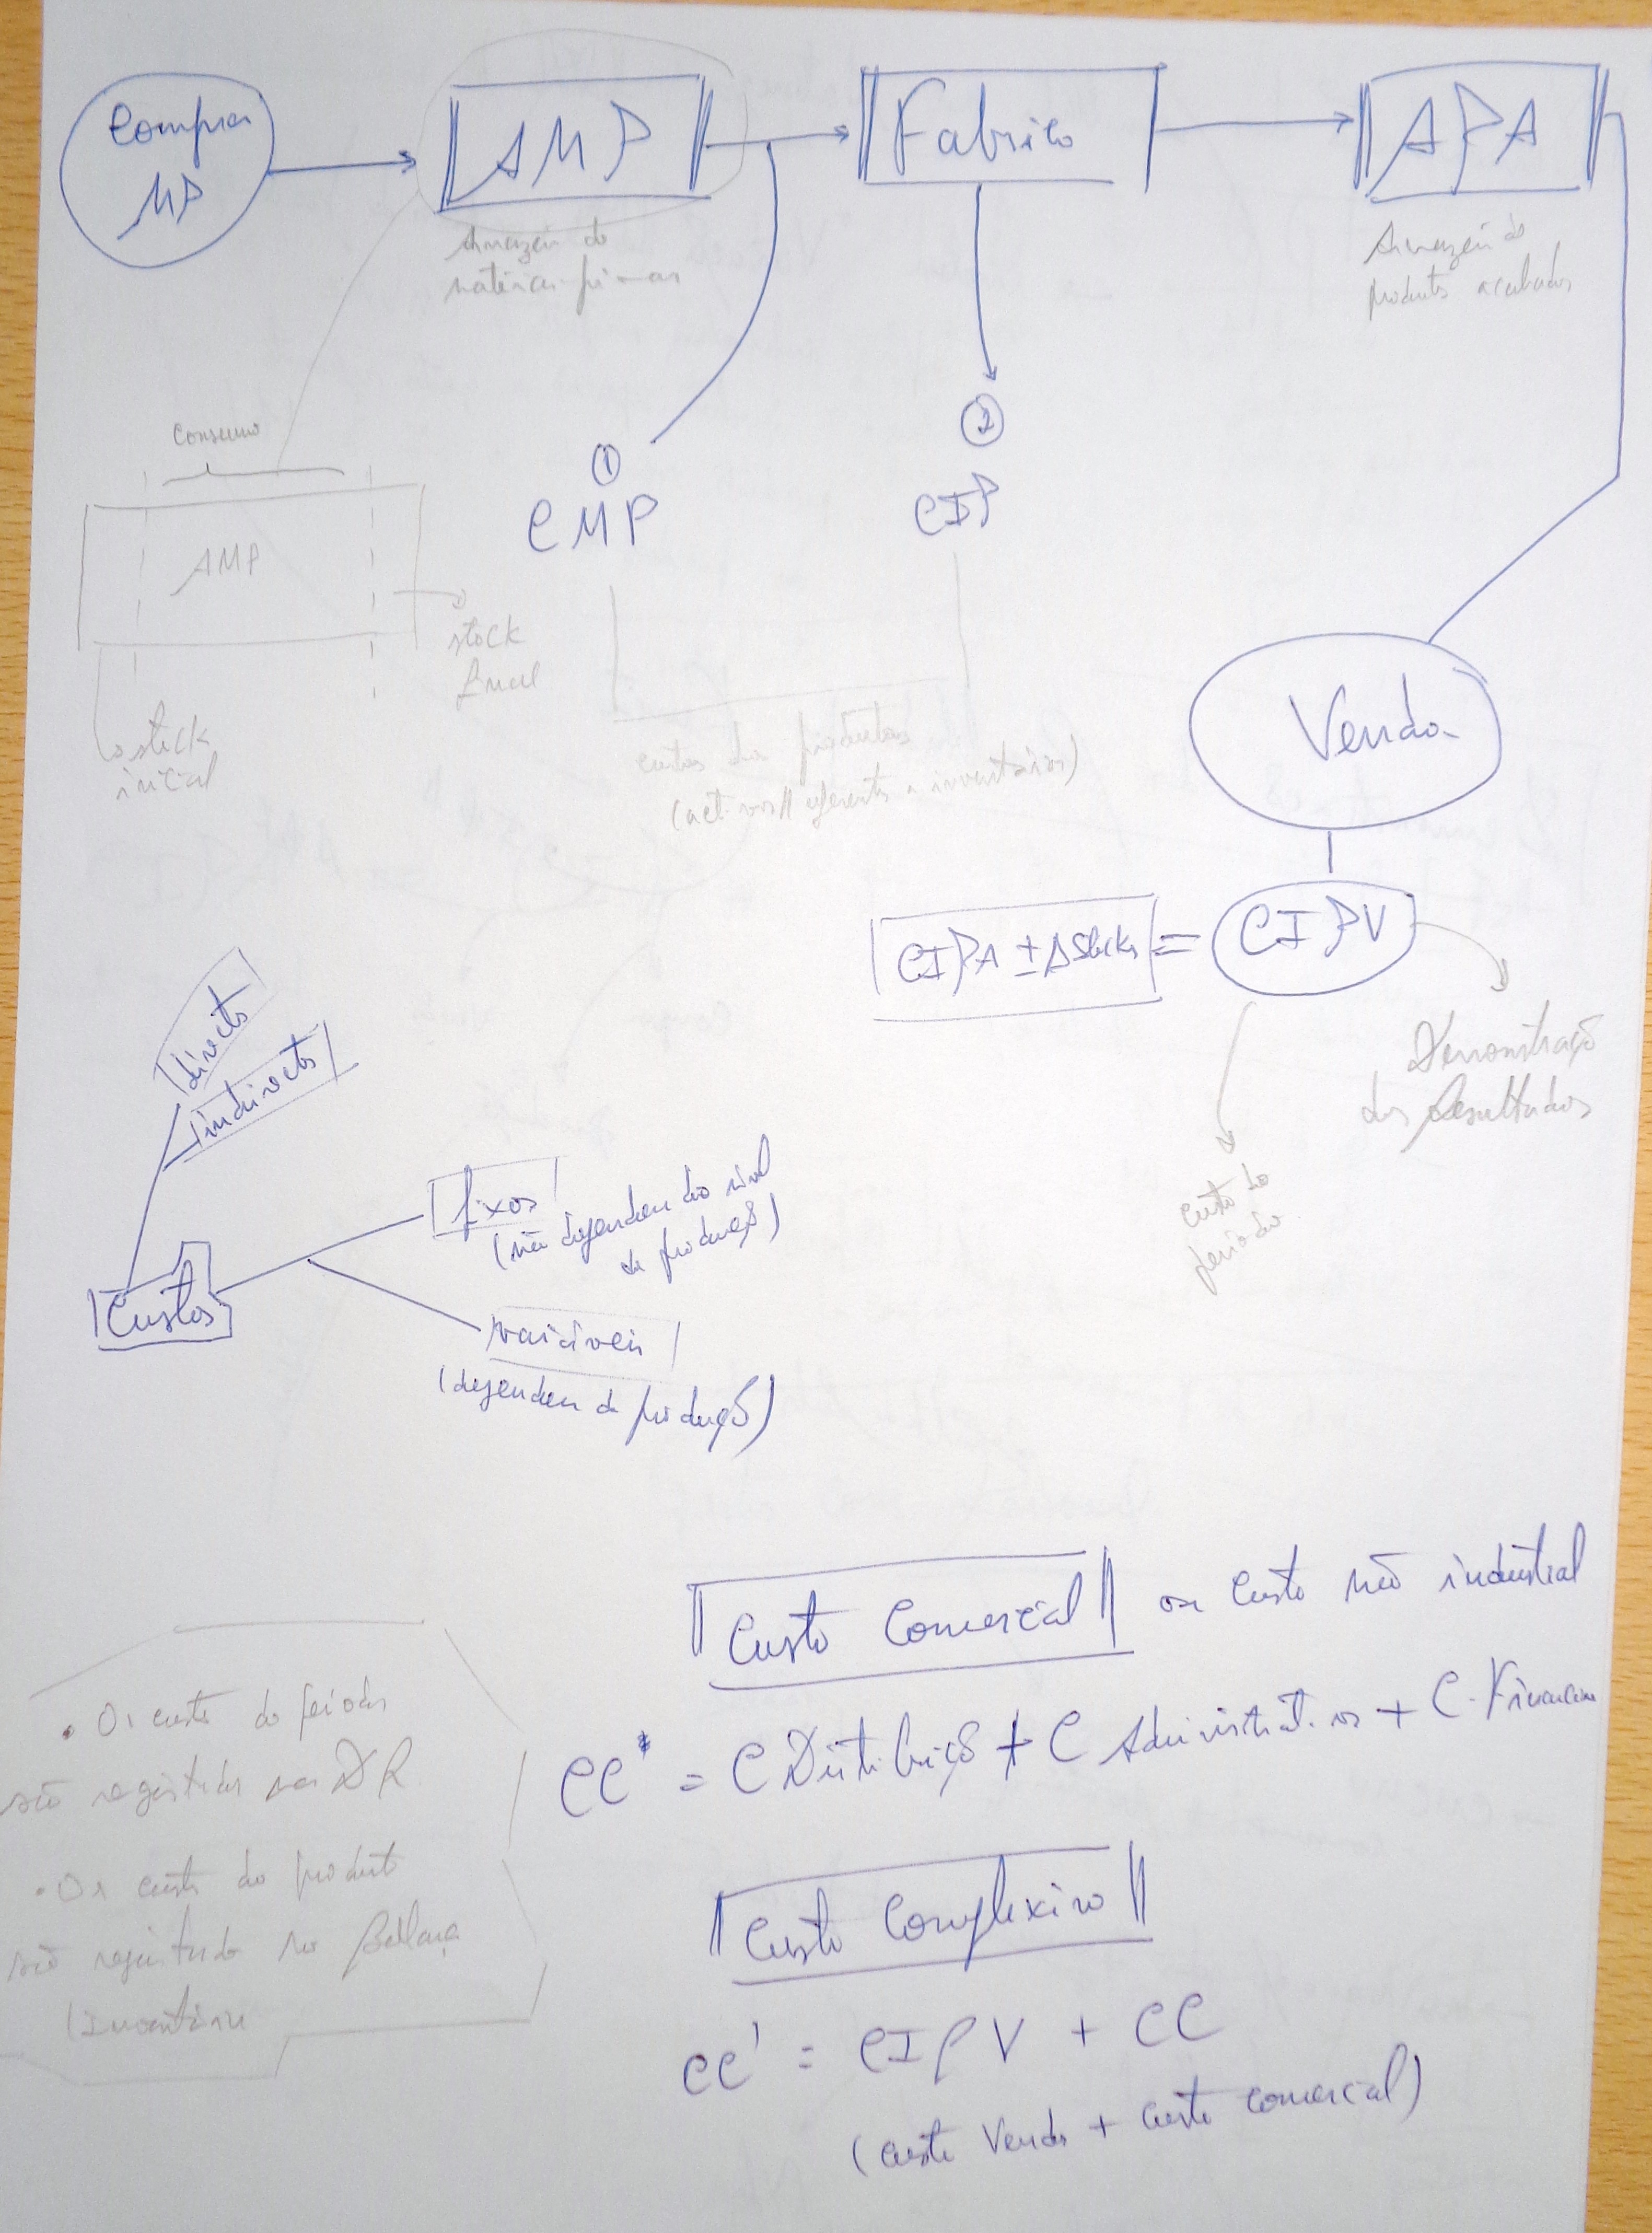 Compra
MP
AMP
Fabrico
APA
Armazém de
matérias-primas
Armazém de
produtos acabados
consumo
AMP
stock
final
stock
inicial
①
CMP
②
CIP
custos dos produtos
(activos referentes a inventários)
Venda
CIPA ± Δstocks = CIPV
Demonstração
dos Resultados
custo do
período
directos
indirectos
Custos
fixos
(não dependem do nível
de produção)
variáveis
(dependem da produção)
Custo Comercial ou Custo não industrial
CC* = C Distribuição + C Administrativos + C. Financeiros
• Os custos do período
são registados na DR
• Os custos do produto
são registados no Balanço
(inventário
Custo Complexivo
CC' = CIPV + CC
(custo Vendas + custo comercial)